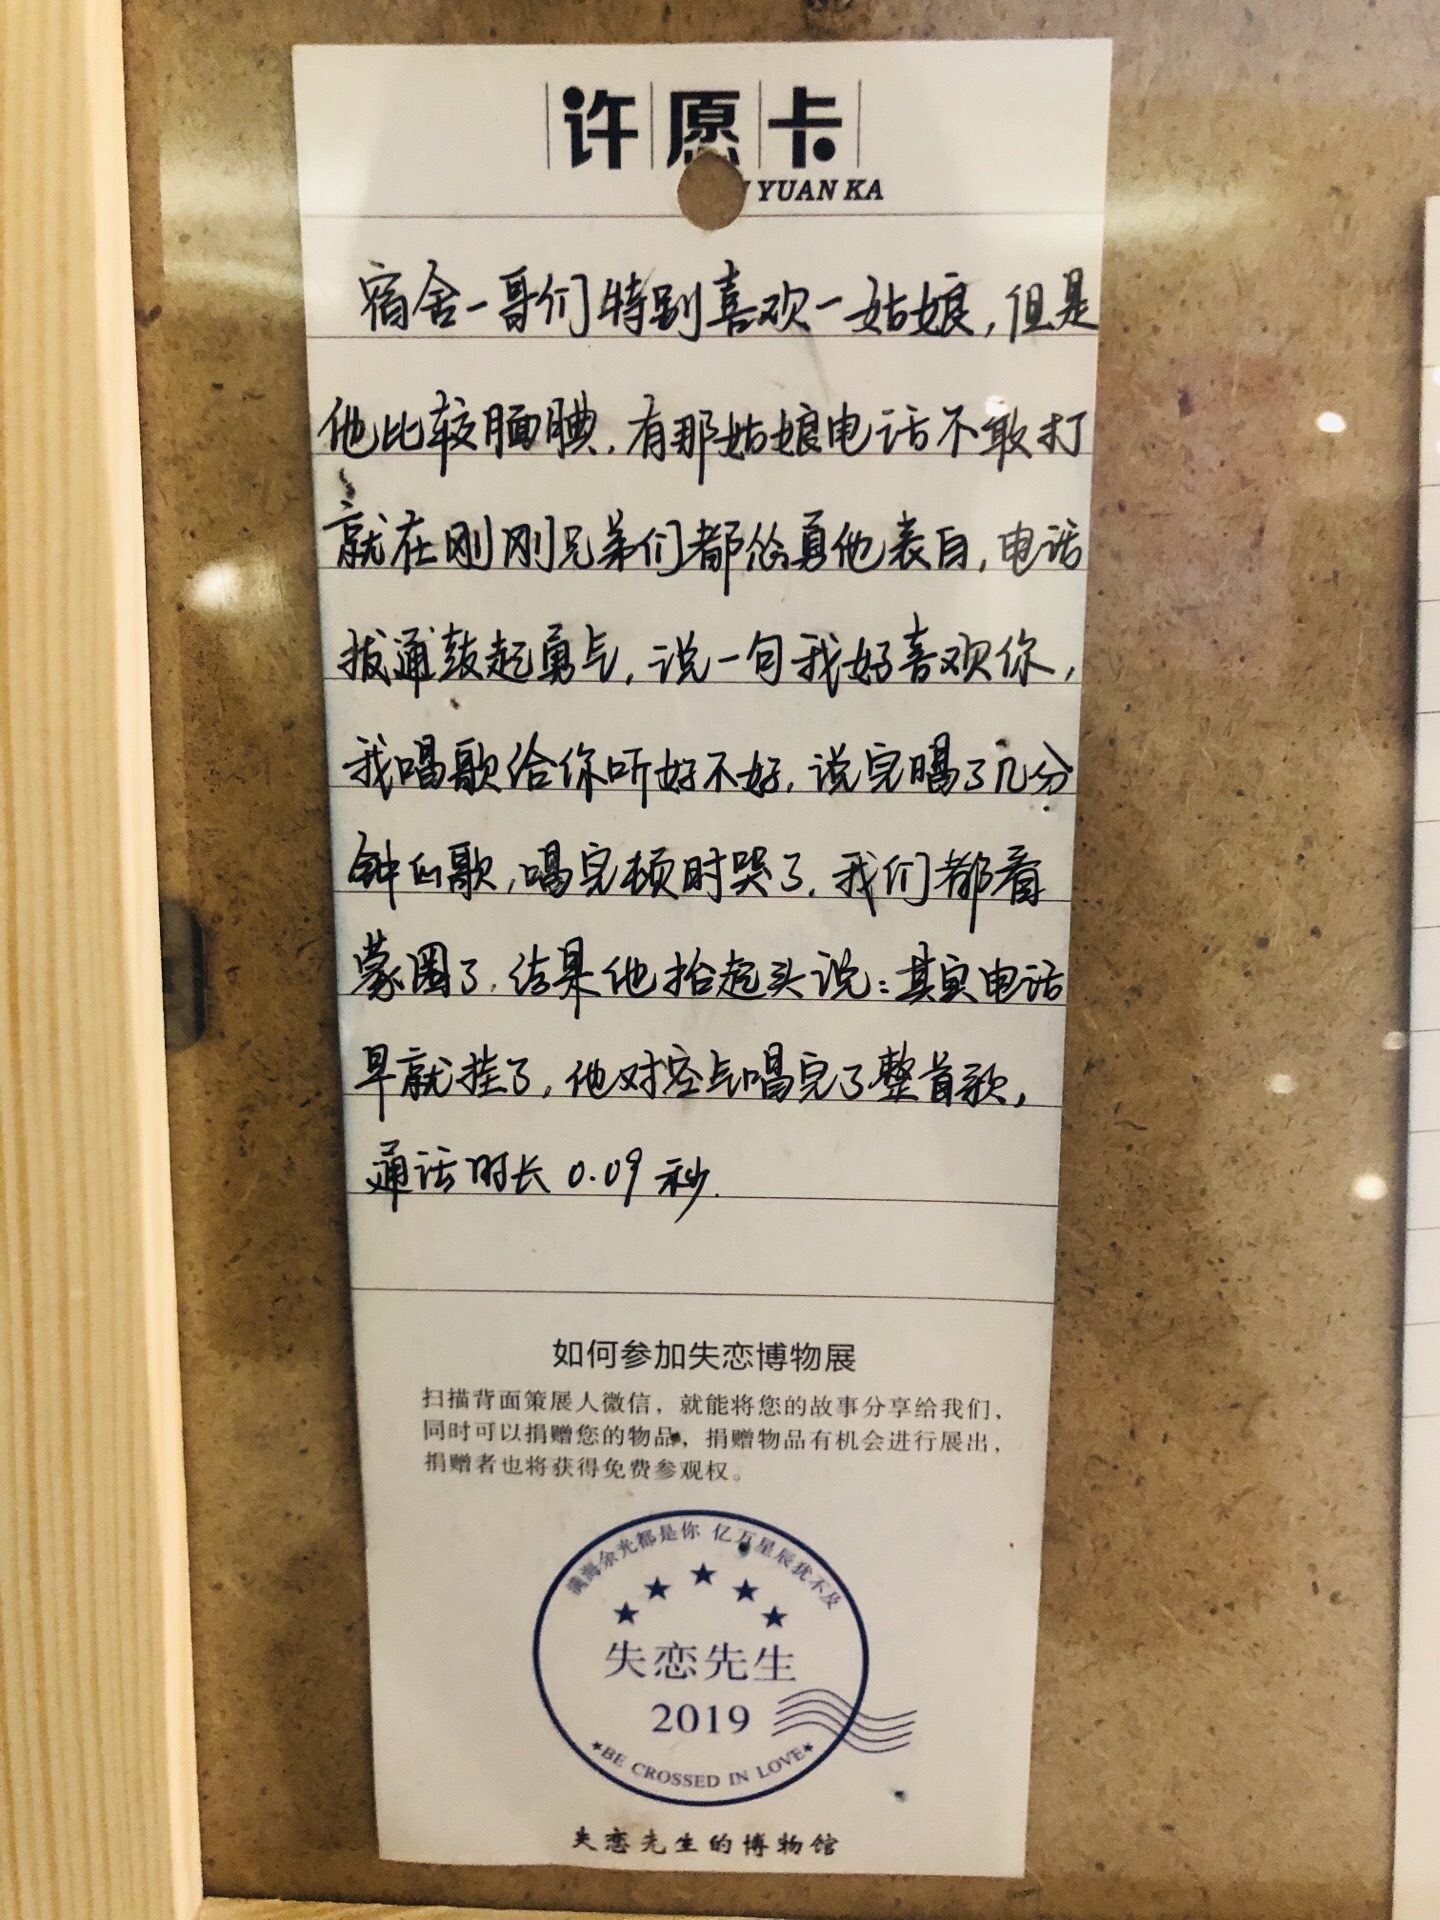 许愿卡
YUAN KA
宿舍一哥们特别喜欢一姑娘,但是
他比较腼腆,有那姑娘电话不敢打
就在刚刚兄弟们都怂勇他表白,电话
拔通鼓起勇气,说一句我好喜欢你,
我唱歌给你听好不好,说完唱了几分
钟的歌,唱完顿时哭了,我们都看
蒙圈了,结果他抬起头说:其实电话
早就挂了,他对空气唱完了整首歌,
通话时长0.09秒.
如何参加失恋博物展
扫描背面策展人微信，就能将您的故事分享给我们，
同时可以捐赠您的物品，捐赠物品有机会进行展出，
捐赠者也将获得免费参观权。
满海余光都是你 亿万星辰犹不及
失恋先生
2019
BE CROSSED IN LOVE
失恋先生的博物馆